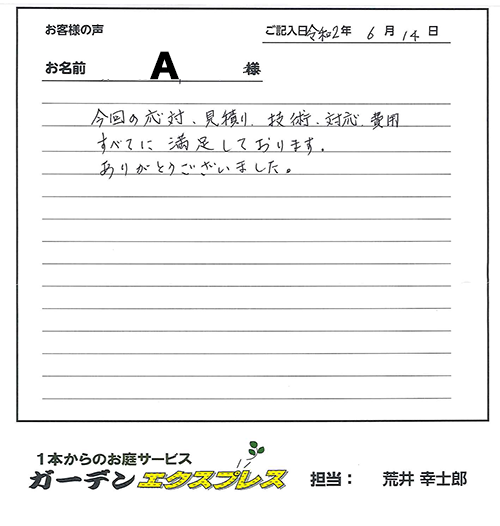 お客様の声
ご記入日令和2年 6月 14日
お名前 A 様
今回の応対、見積り、技術、対応、費用
すべてに満足しております。
ありがとうございました。
1本からのお庭サービス
ガーデンエクスプレス 担当： 荒井 幸士郎